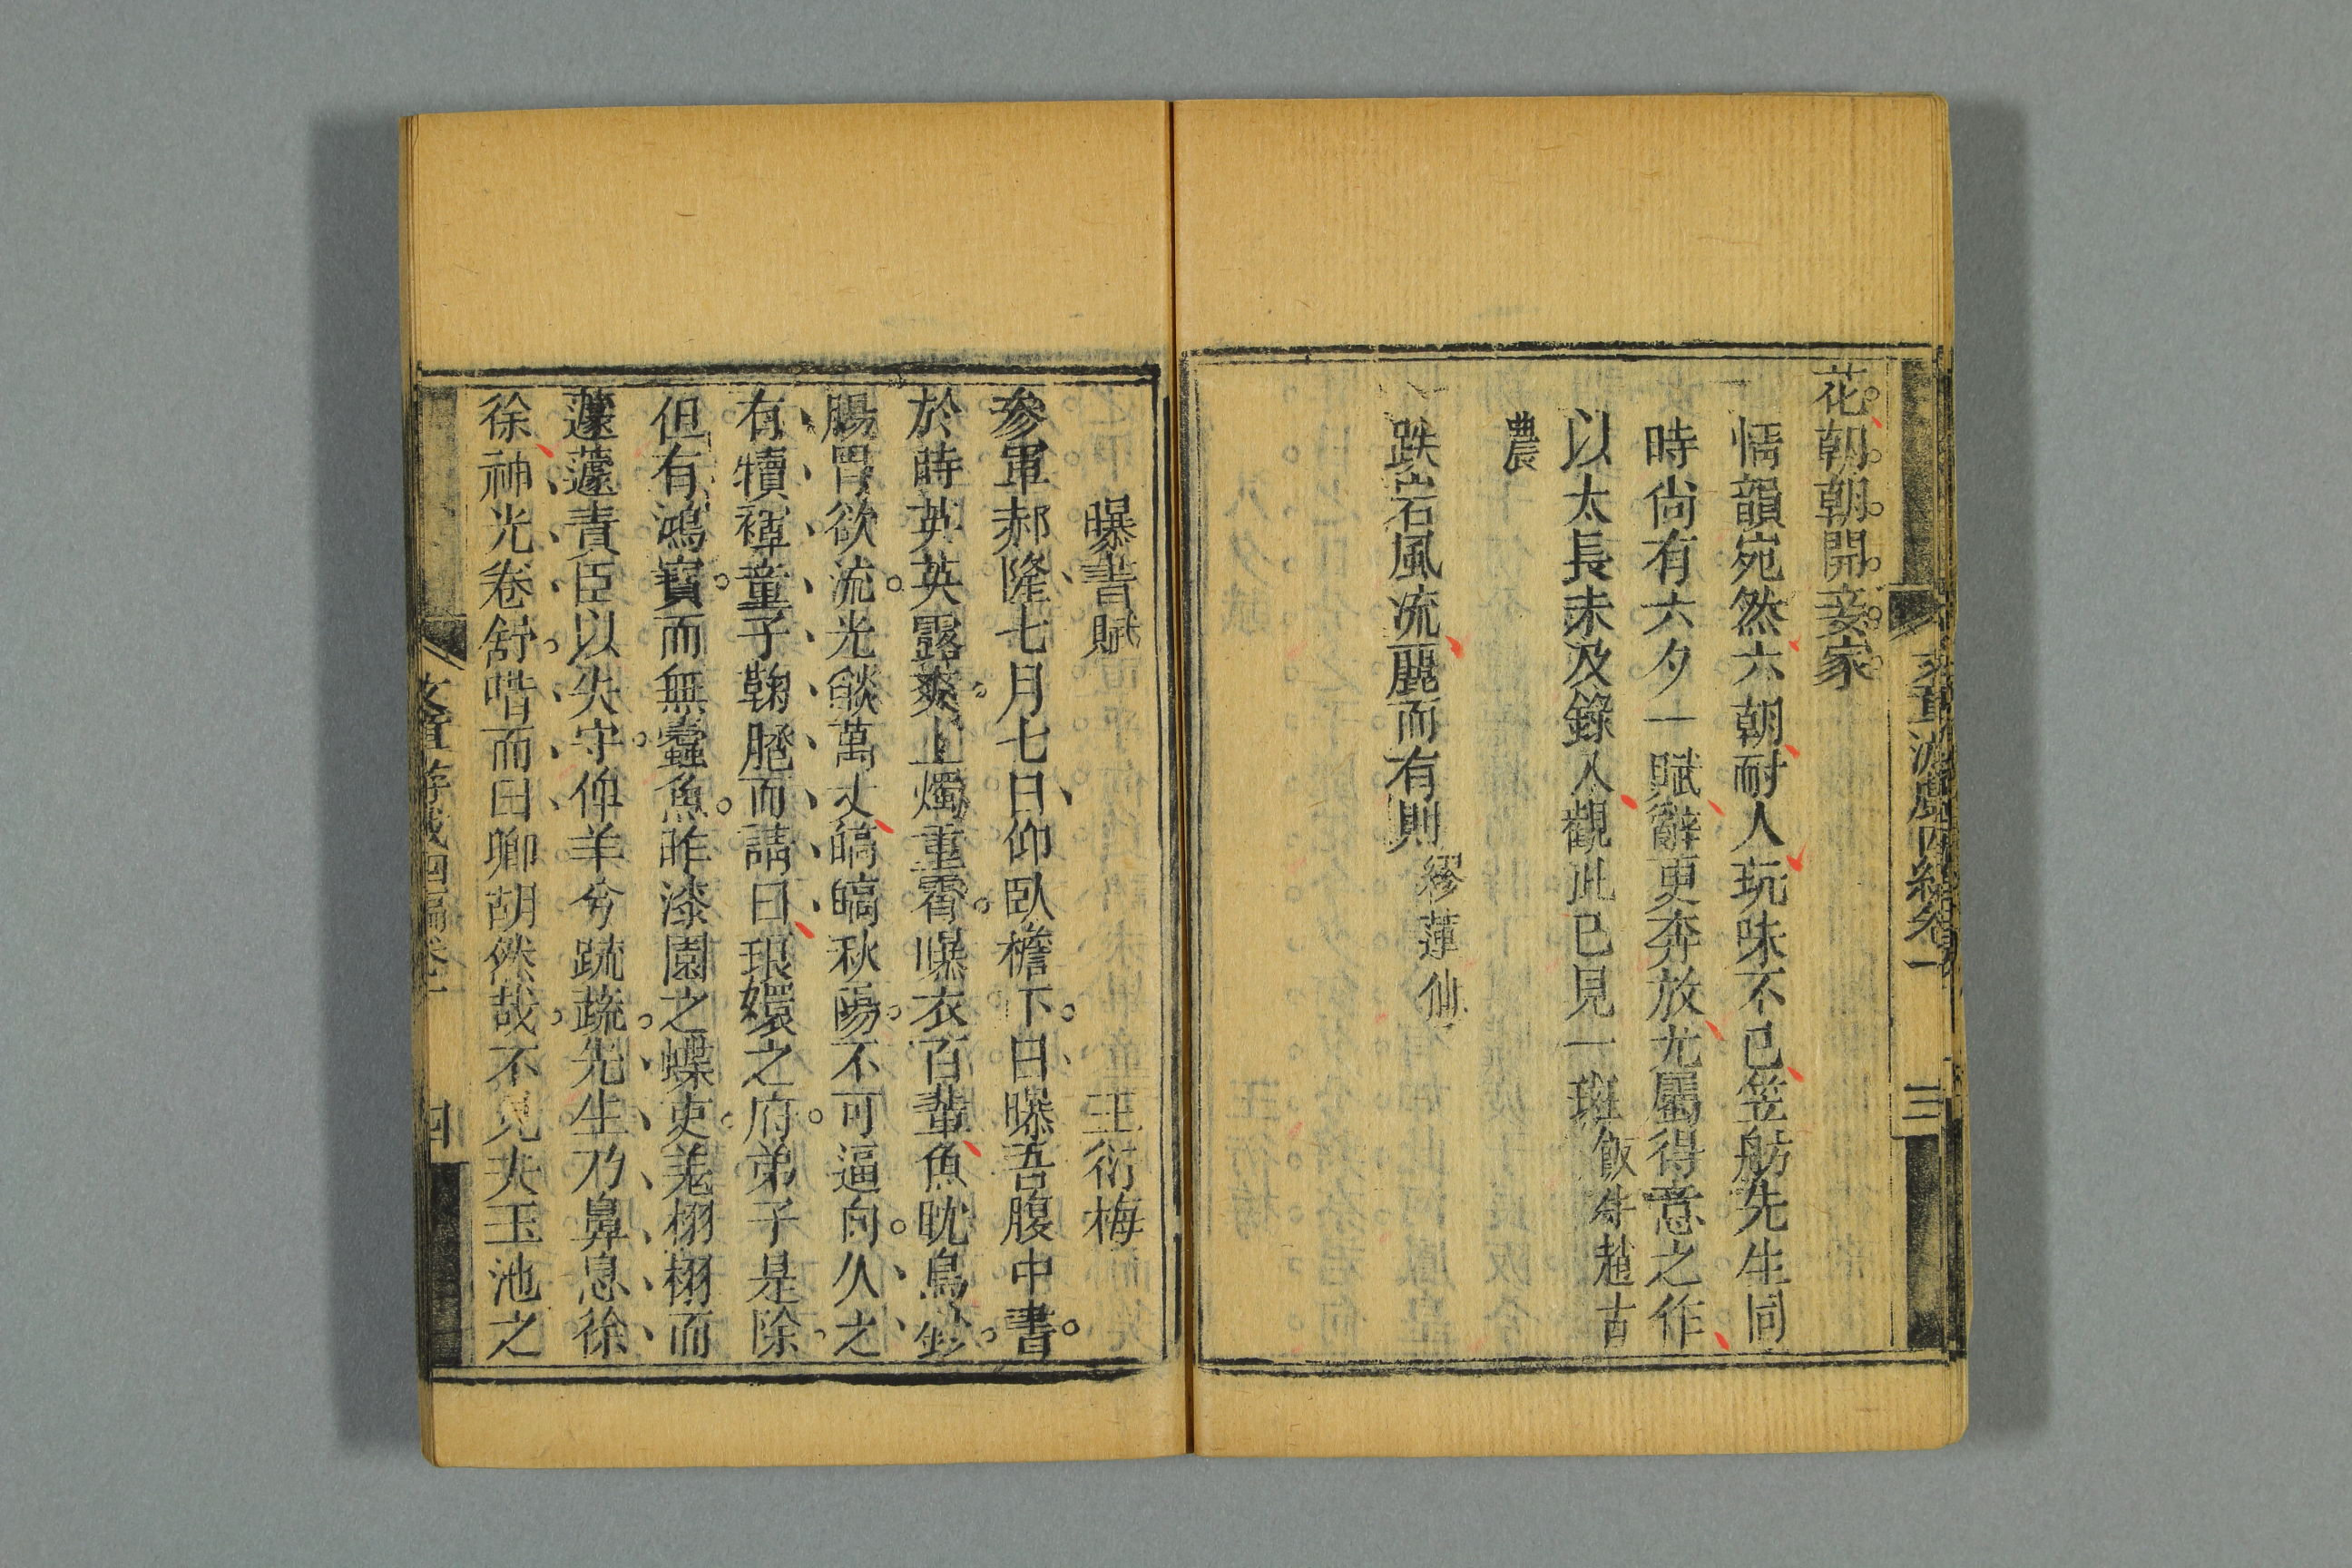 花朝朝開妾家
情韻宛然六朝耐人玩味不已笠舫先生同
時尚有六夕一賦辭更奔放尤屬得意之作
以太長未及錄入觀此已見一斑飯牛趙古
農
跌宕風流麗而有則繆蓮仙
三
曝書賦 王衍梅
參軍郝隆七月七日仰臥檐下曰曝吾腹中書
於時英英露爽上燭重霄曝衣百輩魚眈鳥
腸胃欲流光燄萬丈皜皜秋陽不可逼向久之
有犢褌童子鞠䠆而請曰琅嬛之府弟子是除
但有鴻寶而無蠹魚昨漆園之蝶吏羌栩栩而
蘧蘧青臣以失守仰羊兮疏蔬先生乃鼻息徐
徐神光卷舒喈而曰卿胡然哉不見夫玉池之
文章游戲四編卷一
四